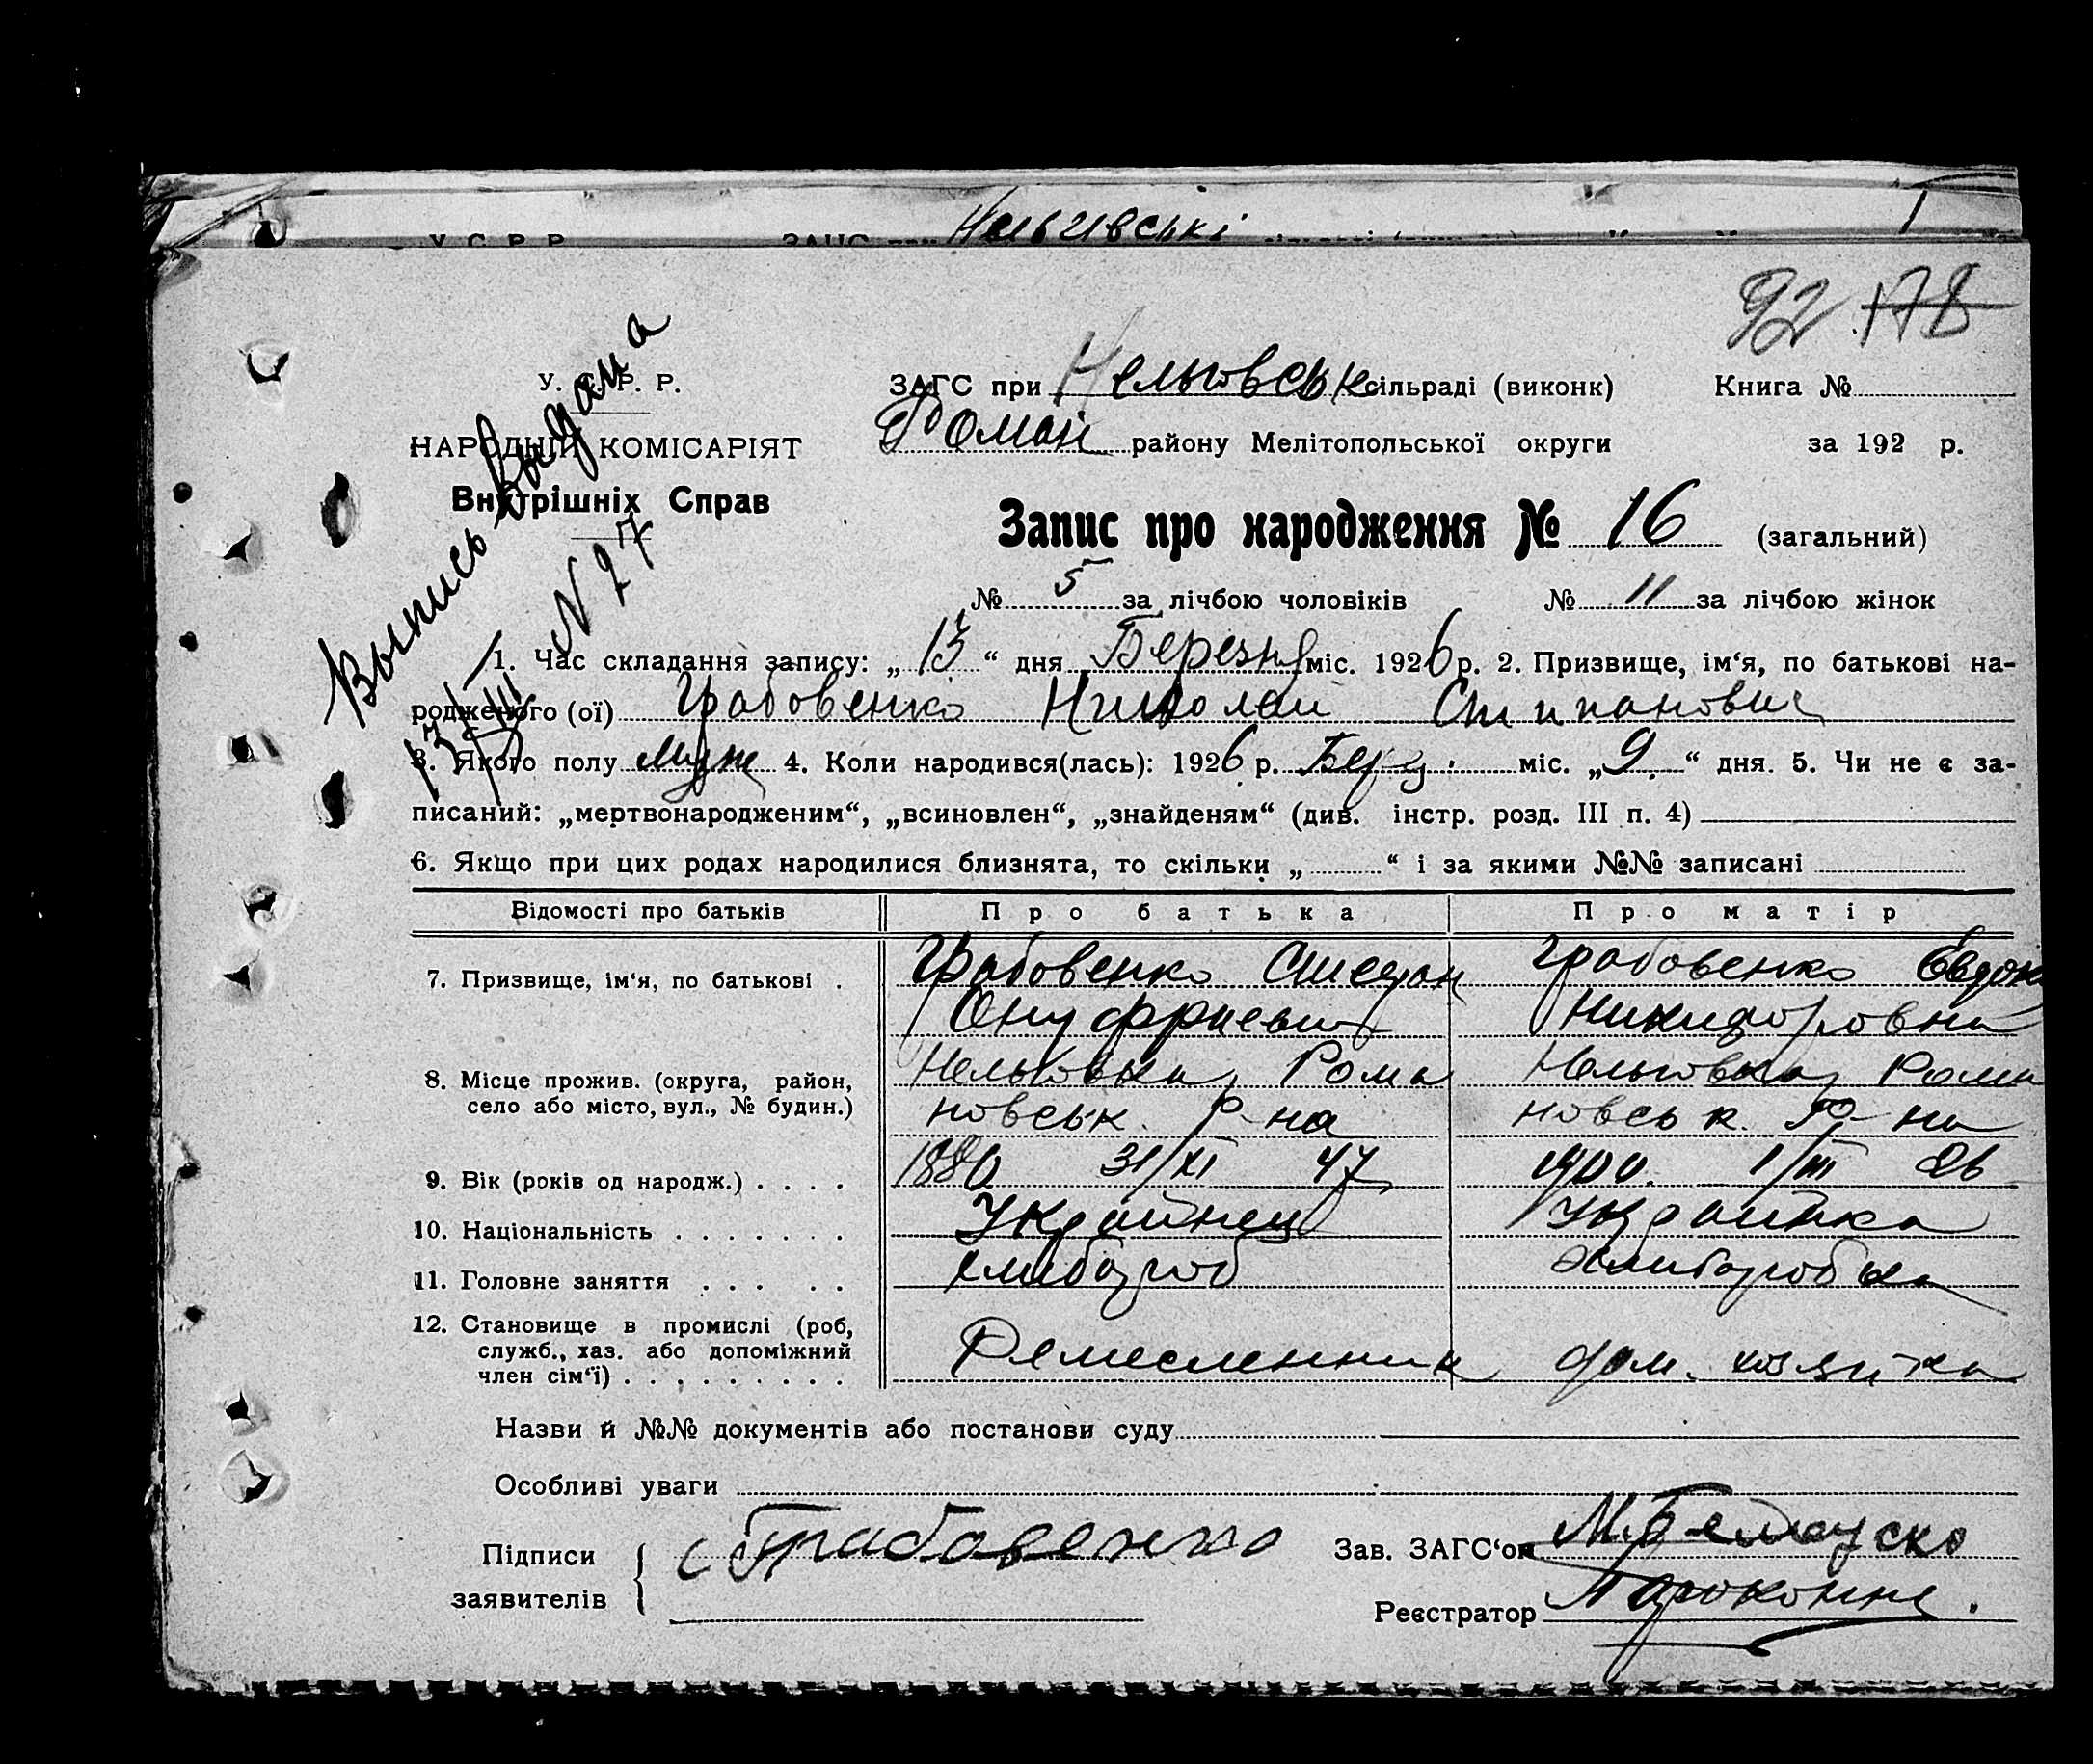 Нельгівські
92 178
У. С. Р. Р.
НАРОДНІЙ КОМІСАРІЯТ
Внутрішніх Справ
Выпись выдана
13/III N 27
ЗАГС при Нельговськ сільраді (виконк) Книга №
Роман району Мелітопольської округи за 192 р.
Запис про народження № 16 (загальний)
№ 5 за лічбою чоловіків № 11 за лічбою жінок
1. Час складання запису: „ 13 “ дня Березня міс. 1926 р. 2. Призвище, ім‘я, по батькові на-
родженого (ої) Грабовенко Николай Стипанович
3. Якого полу муж 4. Коли народився(лась): 1926 р. Берз. міс. „ 9 “ дня. 5. Чи не є за-
писаний: „мертвонародженим“, „всиновлен“, „знайденям“ (див. інстр. розд. III п. 4)
6. Якщо при цих родах народилися близнята, то скільки „ “ і за якими №№ записані
Відомості про батьків Про батька Про матір
7. Призвище, ім‘я, по батькові . Грабовенко Степан Грабовенко Евдок
Онуфриевич Никифоровна
8. Місце прожив. (округа, район, Нельговка, Рома Нельговка, Рома
село або місто, вул., № будин.) новськ. Р-на новськ. Р-на
9. Вік (років од народж.) . . . . 1880 31/XI 47 1900. 1/III 26
10. Національність . . . . . . . Украйнец Украйнка
11. Головне заняття . . . . . хлибороб хлиборобка
12. Становище в промислі (роб,
служб., хаз. або допоміжний Ремесленник дом. хозяйка
член сім‘ї) . . . . . . . . .
Назви й №№ документів або постанови суду
Особливі уваги
Підписи С Грабовенко Зав. ЗАГС‘ом
заявителів Реєстратор